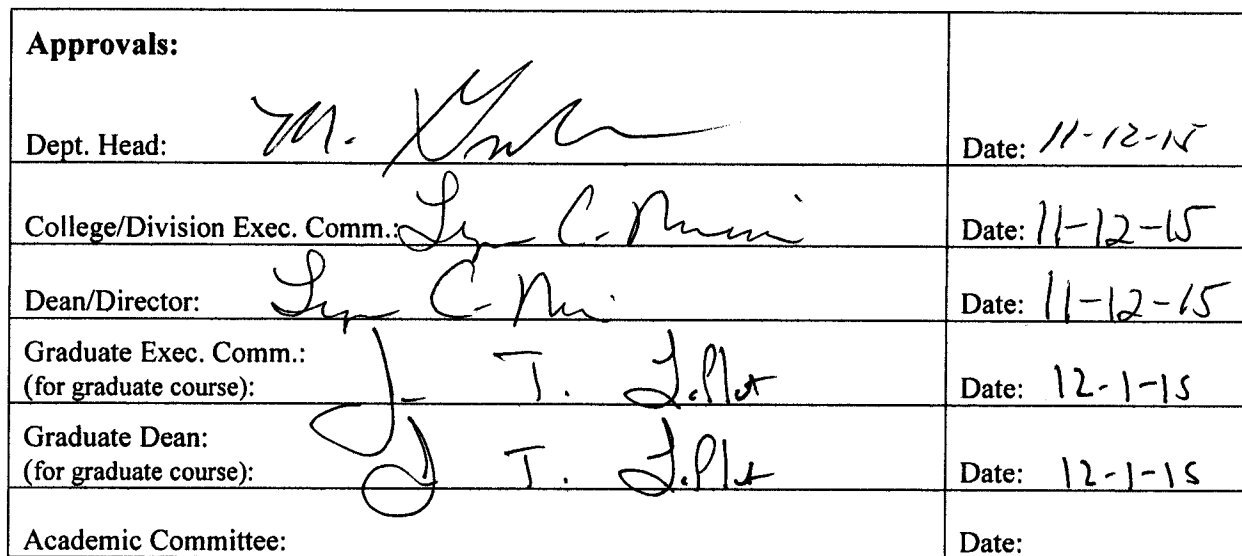 Approvals:
Dept. Head: M. Date: 11-12-15
College/Division Exec. Comm.: C. Date: 11-12-15
Dean/Director: C. Date: 11-12-15
Graduate Exec. Comm.:
(for graduate course): J. T. Date: 12-1-15
Graduate Dean:
(for graduate course): J. T. Date: 12-1-15
Academic Committee: Date: